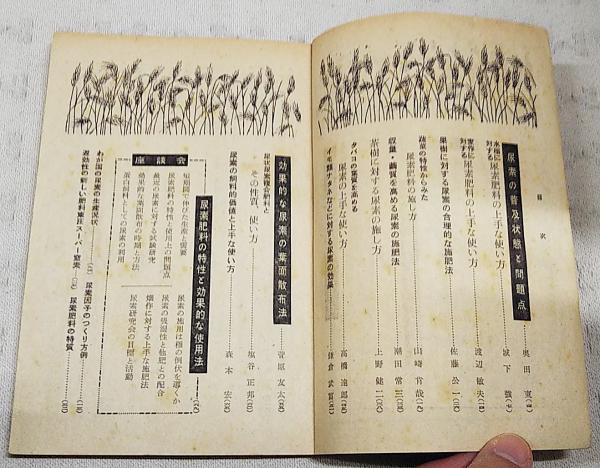 目次
尿素の普及状態と問題点
奥田 東
水稲に対する 尿素肥料の上手な使い方
城下 強
麦作に対する 尿素肥料の上手な使い方
渡辺 敏夫
果樹に対する尿素の合理的な施肥法
佐藤 公一
蔬菜の特性からみた 尿素肥料の施し方
山崎 肯哉
収量・品質を高める尿素の施肥法
潮田 常三
茶樹に対する尿素の施し方
上野 健二
タバコの葉質を高める 尿素の上手な使い方
高橋 達郎
イモ類ナタネなどに対する尿素の効果
鎌倉 武富
効果的な尿素の葉面散布法
菅原 友太
尿状尿素複合肥料と その性質、使い方
塩谷 正邦
尿素の飼料的価値と上手な使い方
森本 宏
座談会
尿素肥料の特性と効果的な使用法
短期間で伸びた生産と需要
尿素肥料の特性と使用上の問題点
最近の尿素に対する試験研究
効果的な葉面散布の時期と方法
蛋白飼料としての尿素の利用
尿素の施用は種の例伏を導くか
尿素の吸湿性と他肥との配合
畑作に対する上手な施肥法
尿素研究会の目標と活動
わが国の尿素の生産現状
尿素因子のつくり方例
遅効性の新しい肥料東圧スーパー窒素
尿素肥料の特質